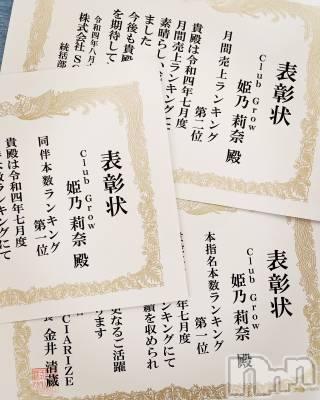 表彰状
Club Grow
姫乃莉奈 殿
月間売上ランキング
第二位
貴殿は令和四年七月度
月間売上ランキングにて
素晴らしい
ました
今後も貴殿
を期待して
令和四年八月
株式会社S
統括部
表彰状
Club Grow
姫乃莉奈 殿
同伴本数ランキング
第一位
貴殿は令和四年七月度
ランキングにて
表彰状
Club Grow
姫乃莉奈 殿
本指名本数ランキング
第一位
年七月度
ランキングにて
績を収められ
更なるご活躍
ります
CIARIZE
金井 清蔵